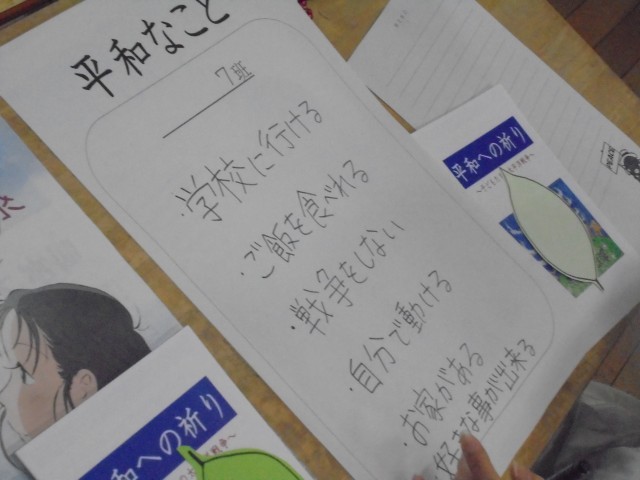 平和なこと
7班
・学校に行ける
・ご飯を食べれる
・戦争をしない
・自分で動ける
・お家がある
・好きな事が出来る
平和への祈り
PEACE
和への祈り